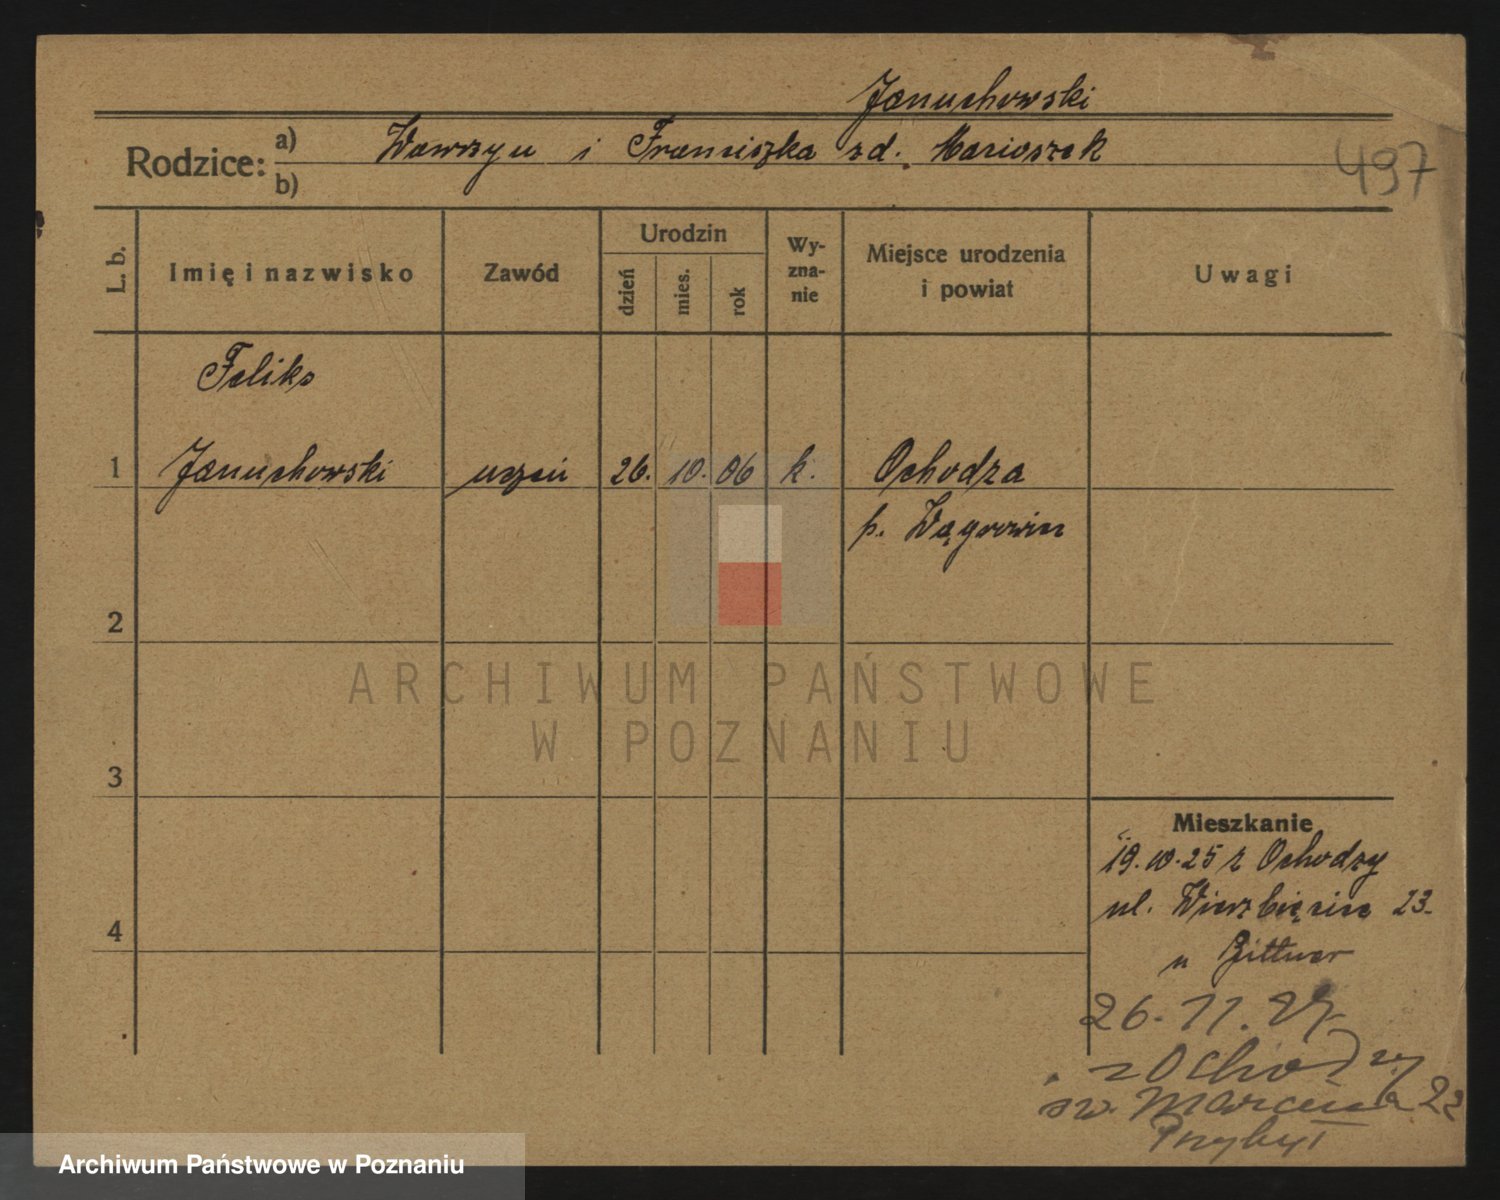 Januchowski
Rodzice: a) Wawrzyn i Franciszka zd. Marioszek
b)
497
L. b. Imię i nazwisko Zawód Urodzin dzień mies. rok Wyznanie Miejsce urodzenia i powiat Uwagi
Feliks
1 Januchowski uczeń 26. 10. 06 k. Ochodza
p. Wągrowiec
2
ARCHIWUM PAŃSTWOWE
W POZNANIU
3
Mieszkanie
19.10.25 z Ochodzy
ul. Wierzbięcice 23.
4
u Bittner
26. 11. 27.
z Ochodzy
św. Marcina 22
Przybył
Archiwum Państwowe w Poznaniu